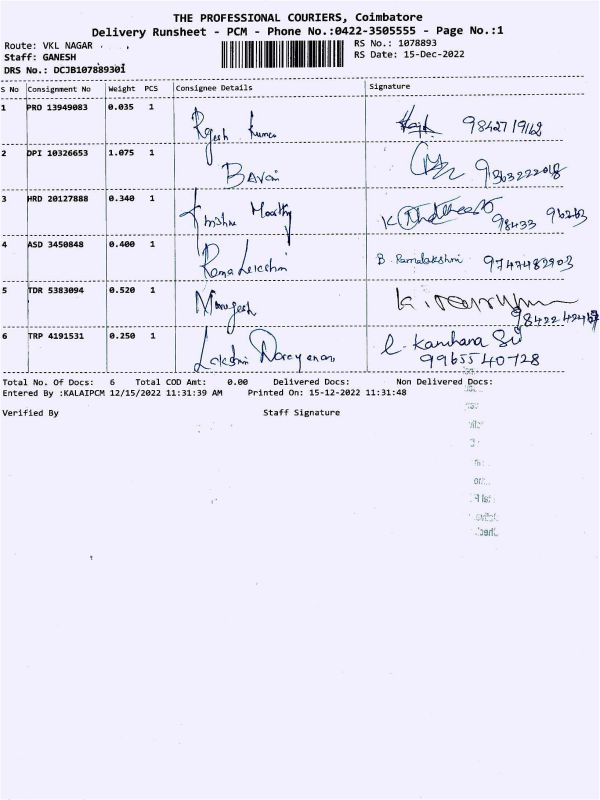 THE PROFESSIONAL COURIERS, Coimbatore
Delivery Runsheet - PCM - Phone No.:0422-3505555 - Page No.:1
Route: VKL NAGAR
RS No.: 1078893
Staff: GANESH
RS Date: 15-Dec-2022
DRS No.: DCJB107889301
S No Consignment No Weight PCS Consignee Details Signature
1 PRO 13949083 0.035 1 Rajesh Kumar
2 DPI 10326653 1.075 1 Bavani
3 HRD 20127888 0.340 1 Krishna Moorthy
4 ASD 3450848 0.400 1 Rama Lakshmi B. Ramalakshmi 9747482903
5 TDR 5383094 0.520 1 Murugesh
6 TRP 4191531 0.250 1 Lakshmi Narayanan
9965540728
Total No. Of Docs: 6 Total COD Amt: 0.00 Delivered Docs: Non Delivered Docs:
Entered By :KALAIPCM 12/15/2022 11:31:39 AM Printed On: 15-12-2022 11:31:48
Verified By Staff Signature